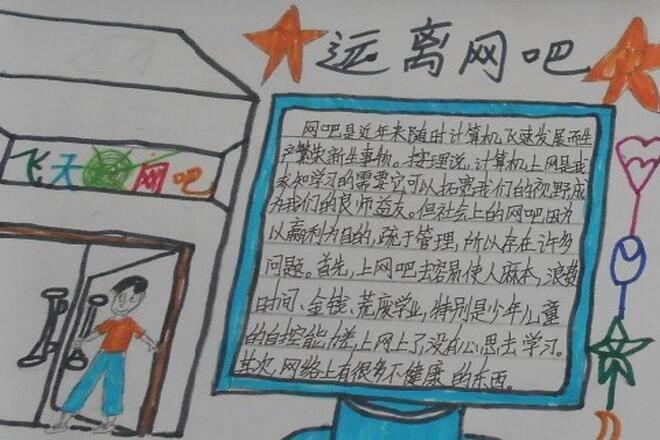 远离网吧
飞天网吧
网吧是近年来随时计算机飞速发展而生
产繁荣新生事物。按理说，计算机上网是我
求知学习的需要它可以拓宽我们的视野成
为我们的良师益友。但社会上的网吧因为
以赢利为目的，疏于管理，所以存在许多
问题。首先，上网吧去容易使人麻木，浪费
时间、金钱、荒废学业，特别是少年儿童
的自控能力差，上网上了没有心思去学习。
其次，网络上有很多不健康的东西。